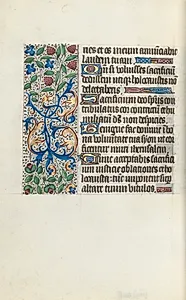 nes et os meum annuciabit
laudem tuam
Qm si voluisses sacrificiu
dedissem utiqz holocaustis no
delectaberis
Sacrificium deo spus con
tribulatus cor contritu et hu
miliatu ds non despicies
Benigne fac domine i bo
na voluntate tua syon ut edi
ficentur muri iherusalem
Tunc acceptabis sacrifici
um iusticie oblationes et ho
locausta tuc imponent sup
altare tuum vitulos